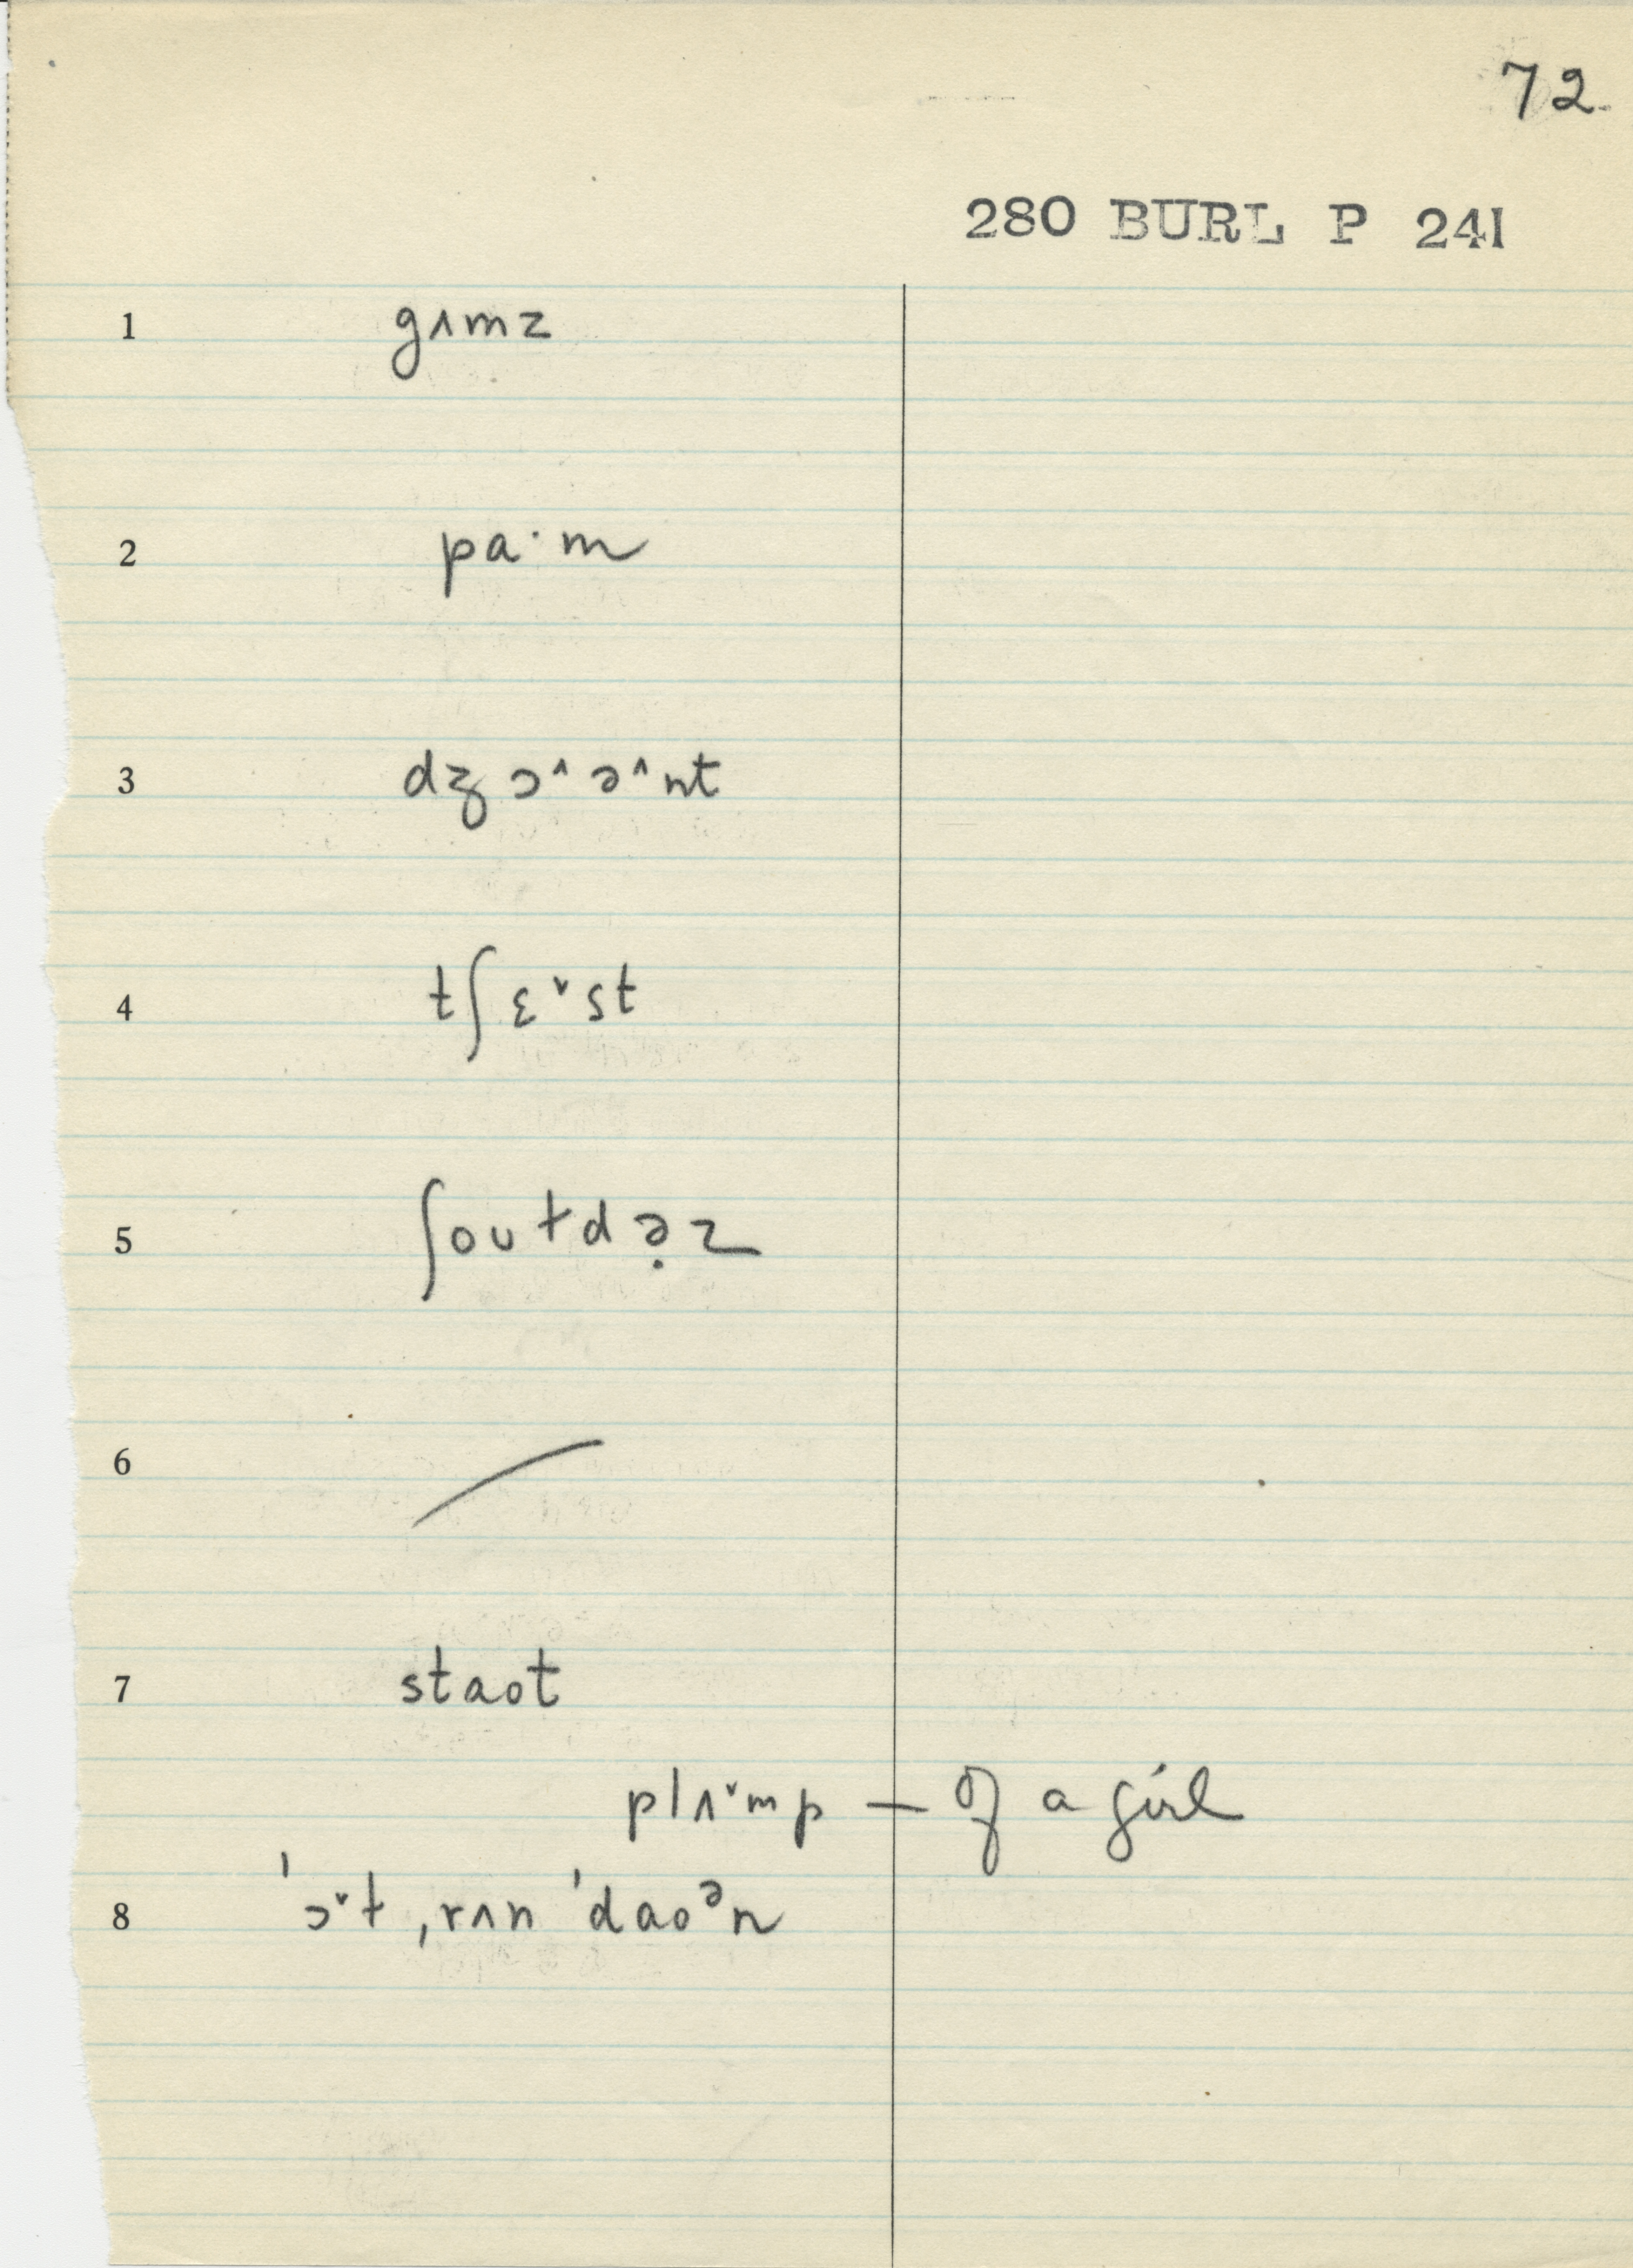 72.
280 BURL P 241
1 gʌmz
2 pa·m
3 dʒɔ^ə^nt
4 tʃɛˇst
5 ʃoʊɫdə̣z
6 /
7 staot
plʌˇmp — of a girl
8 'ɔˇɫ ˌrʌn 'daoᵊn